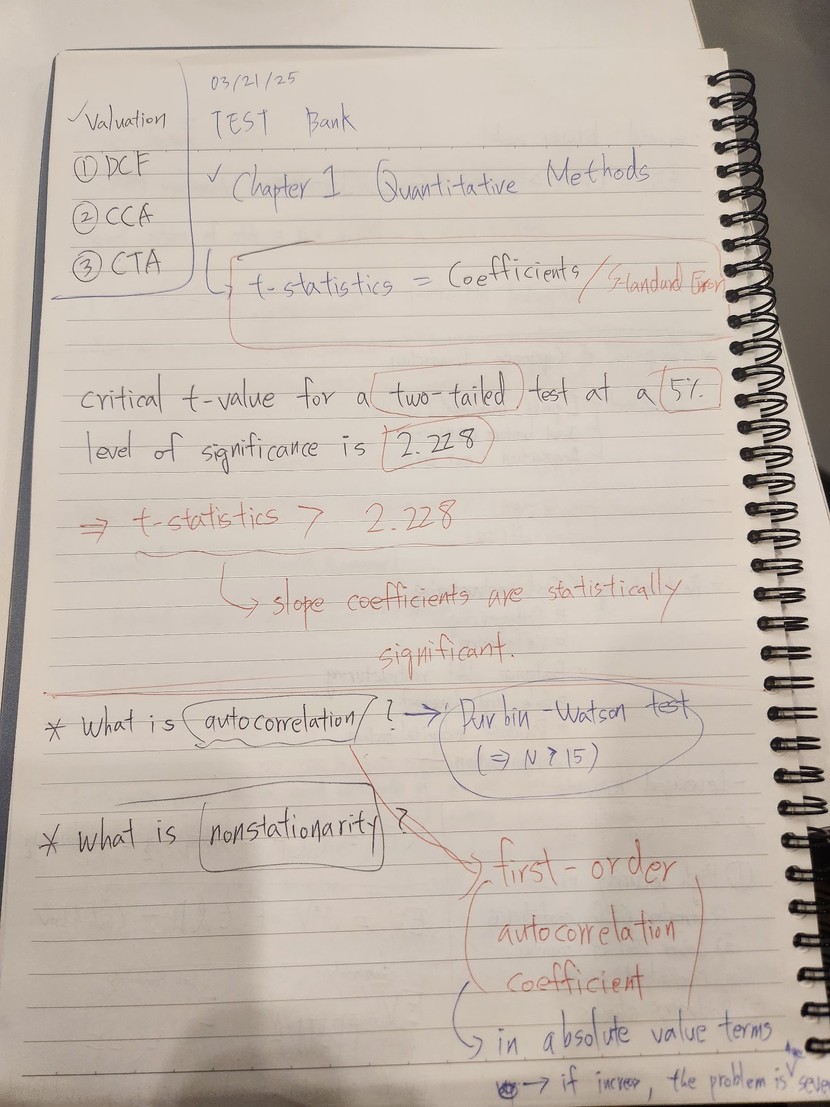 ✓Valuation
① DCF
② CCA
③ CTA
03/21/25
TEST Bank
✓ Chapter 1 Quantitative Methods
↳ t-statistics = Coefficients / Standard Error
critical t-value for a two-tailed test at a 5%
level of significance is 2.228
⇒ t-statistics > 2.228
↳ slope coefficients are statistically
significant.
* What is autocorrelation? → Durbin-Watson test
(⇒ N > 15)
* What is nonstationarity?
first-order
autocorrelation
coefficient
↳ in absolute value terms
→ if increase, the problem is